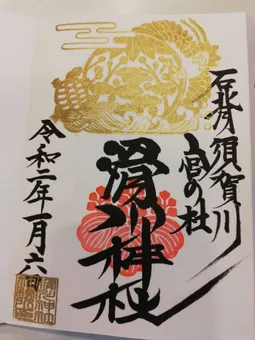 石背須賀川
宮の杜
滑川神社
令和二年一月六日